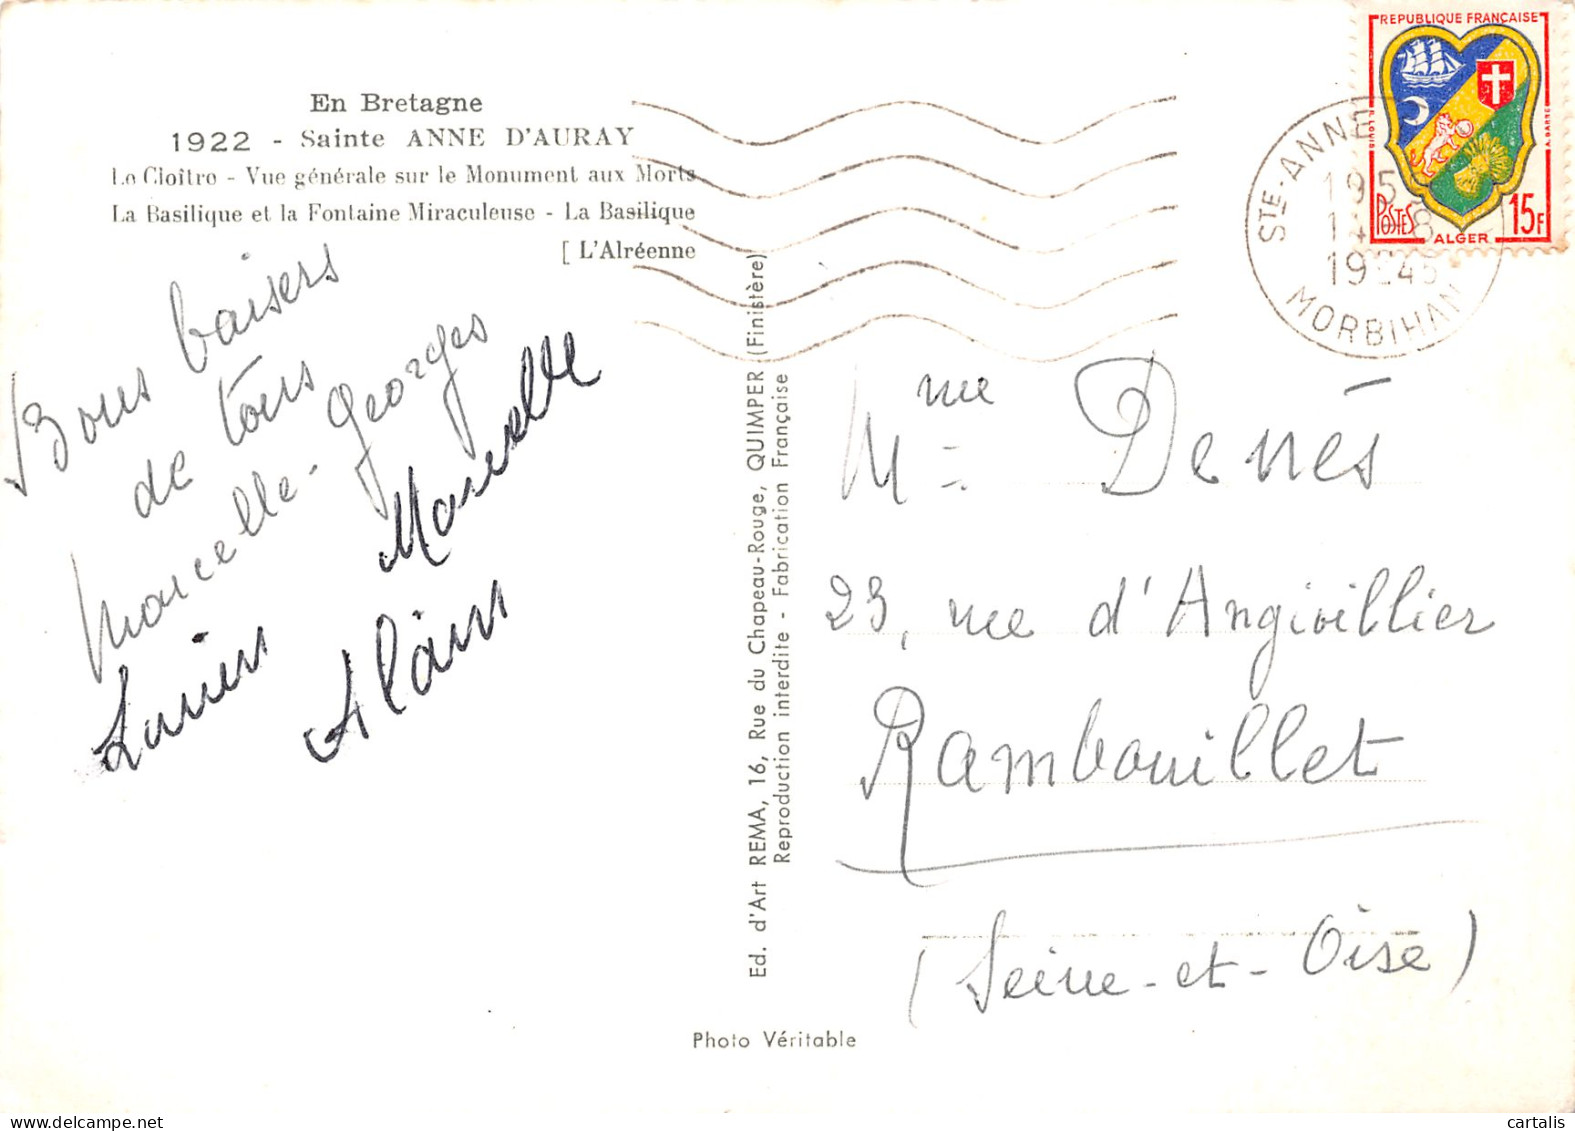 En Bretagne
1922 - Sainte ANNE D'AURAY
Le Cloître - Vue générale sur le Monument aux Morts
La Basilique et la Fontaine Miraculeuse - La Basilique
[ L'Alréenne
Bons baisers
de tous
Marcelle - Georges
Marcelle
Alain
Ed. d'Art REMA, 16, Rue du Chapeau-Rouge, QUIMPER (Finistère)
Reproduction interdite - Fabrication Française
Photo Véritable
REPUBLIQUE FRANÇAISE
POSTES
ALGER
15F
STE-ANNE
MORBIHAN
Mme Denés
23, rue d'Angivillier
Rambouillet
(Seine-et-Oise)
cartalis